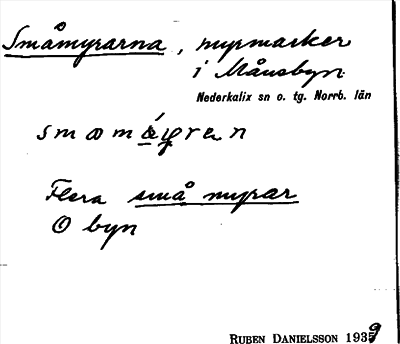 Småmyrarna, myrmarker
i Månsbyn.
Nederkalix sn o. tg. Norrb. län
Flera små myrar
O byn
RUBEN DANIELSSON 1939